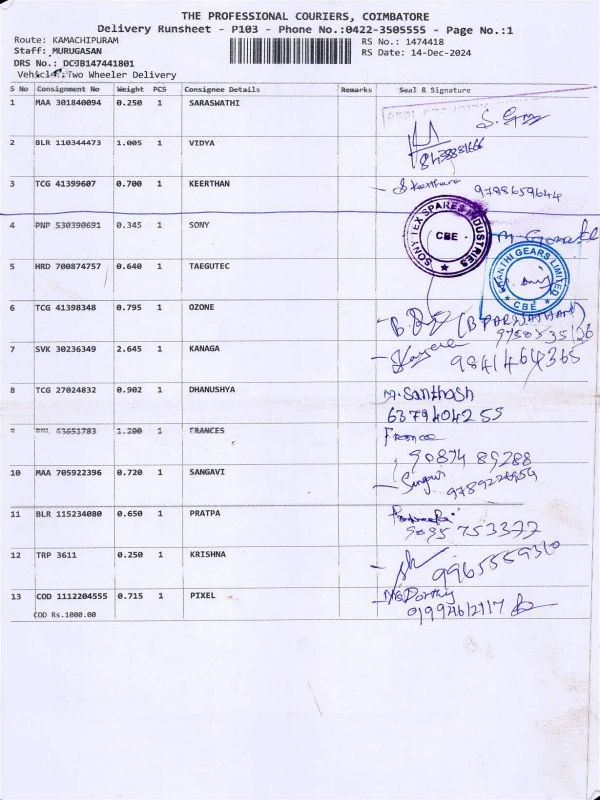 THE PROFESSIONAL COURIERS, COIMBATORE
Delivery Runsheet - P103 - Phone No.:0422-3505555 - Page No.:1
Route: KAMACHIPURAM RS No.: 1474418
Staff: MURUGASAN RS Date: 14-Dec-2024
DRS No.: DCJB147441801
Vehicle: Two Wheeler Delivery
S No Consignment No Weight PCS Consignee Details Remarks Seal & Signature
1 MAA 301840094 0.250 1 SARASWATHI
2 BLR 110344473 1.005 1 VIDYA
3 TCG 41399607 0.700 1 KEERTHAN S Keerthana 9788659644
4 PNP 530390691 0.345 1 SONY
SONY TEX SPARES INDUSTRIES CBE
5 HRD 700874757 0.640 1 TAEGUTEC
SHANTHI GEARS LIMITED CBE
6 TCG 41398348 0.795 1 OZONE
7 SVK 30236349 2.645 1 KANAGA 9841464365
8 TCG 27024832 0.902 1 DHANUSHYA M. Santhosh
6379404255
1.200 1 FRANCES France
90874 89288
10 MAA 705922396 0.720 1 SANGAVI Sangavi
11 BLR 115234080 0.650 1 PRATPA
9095 753377
12 TRP 3611 0.250 1 KRISHNA 9965559310
13 COD 1112204555 0.715 1 PIXEL
COD Rs.1000.00 01994612117